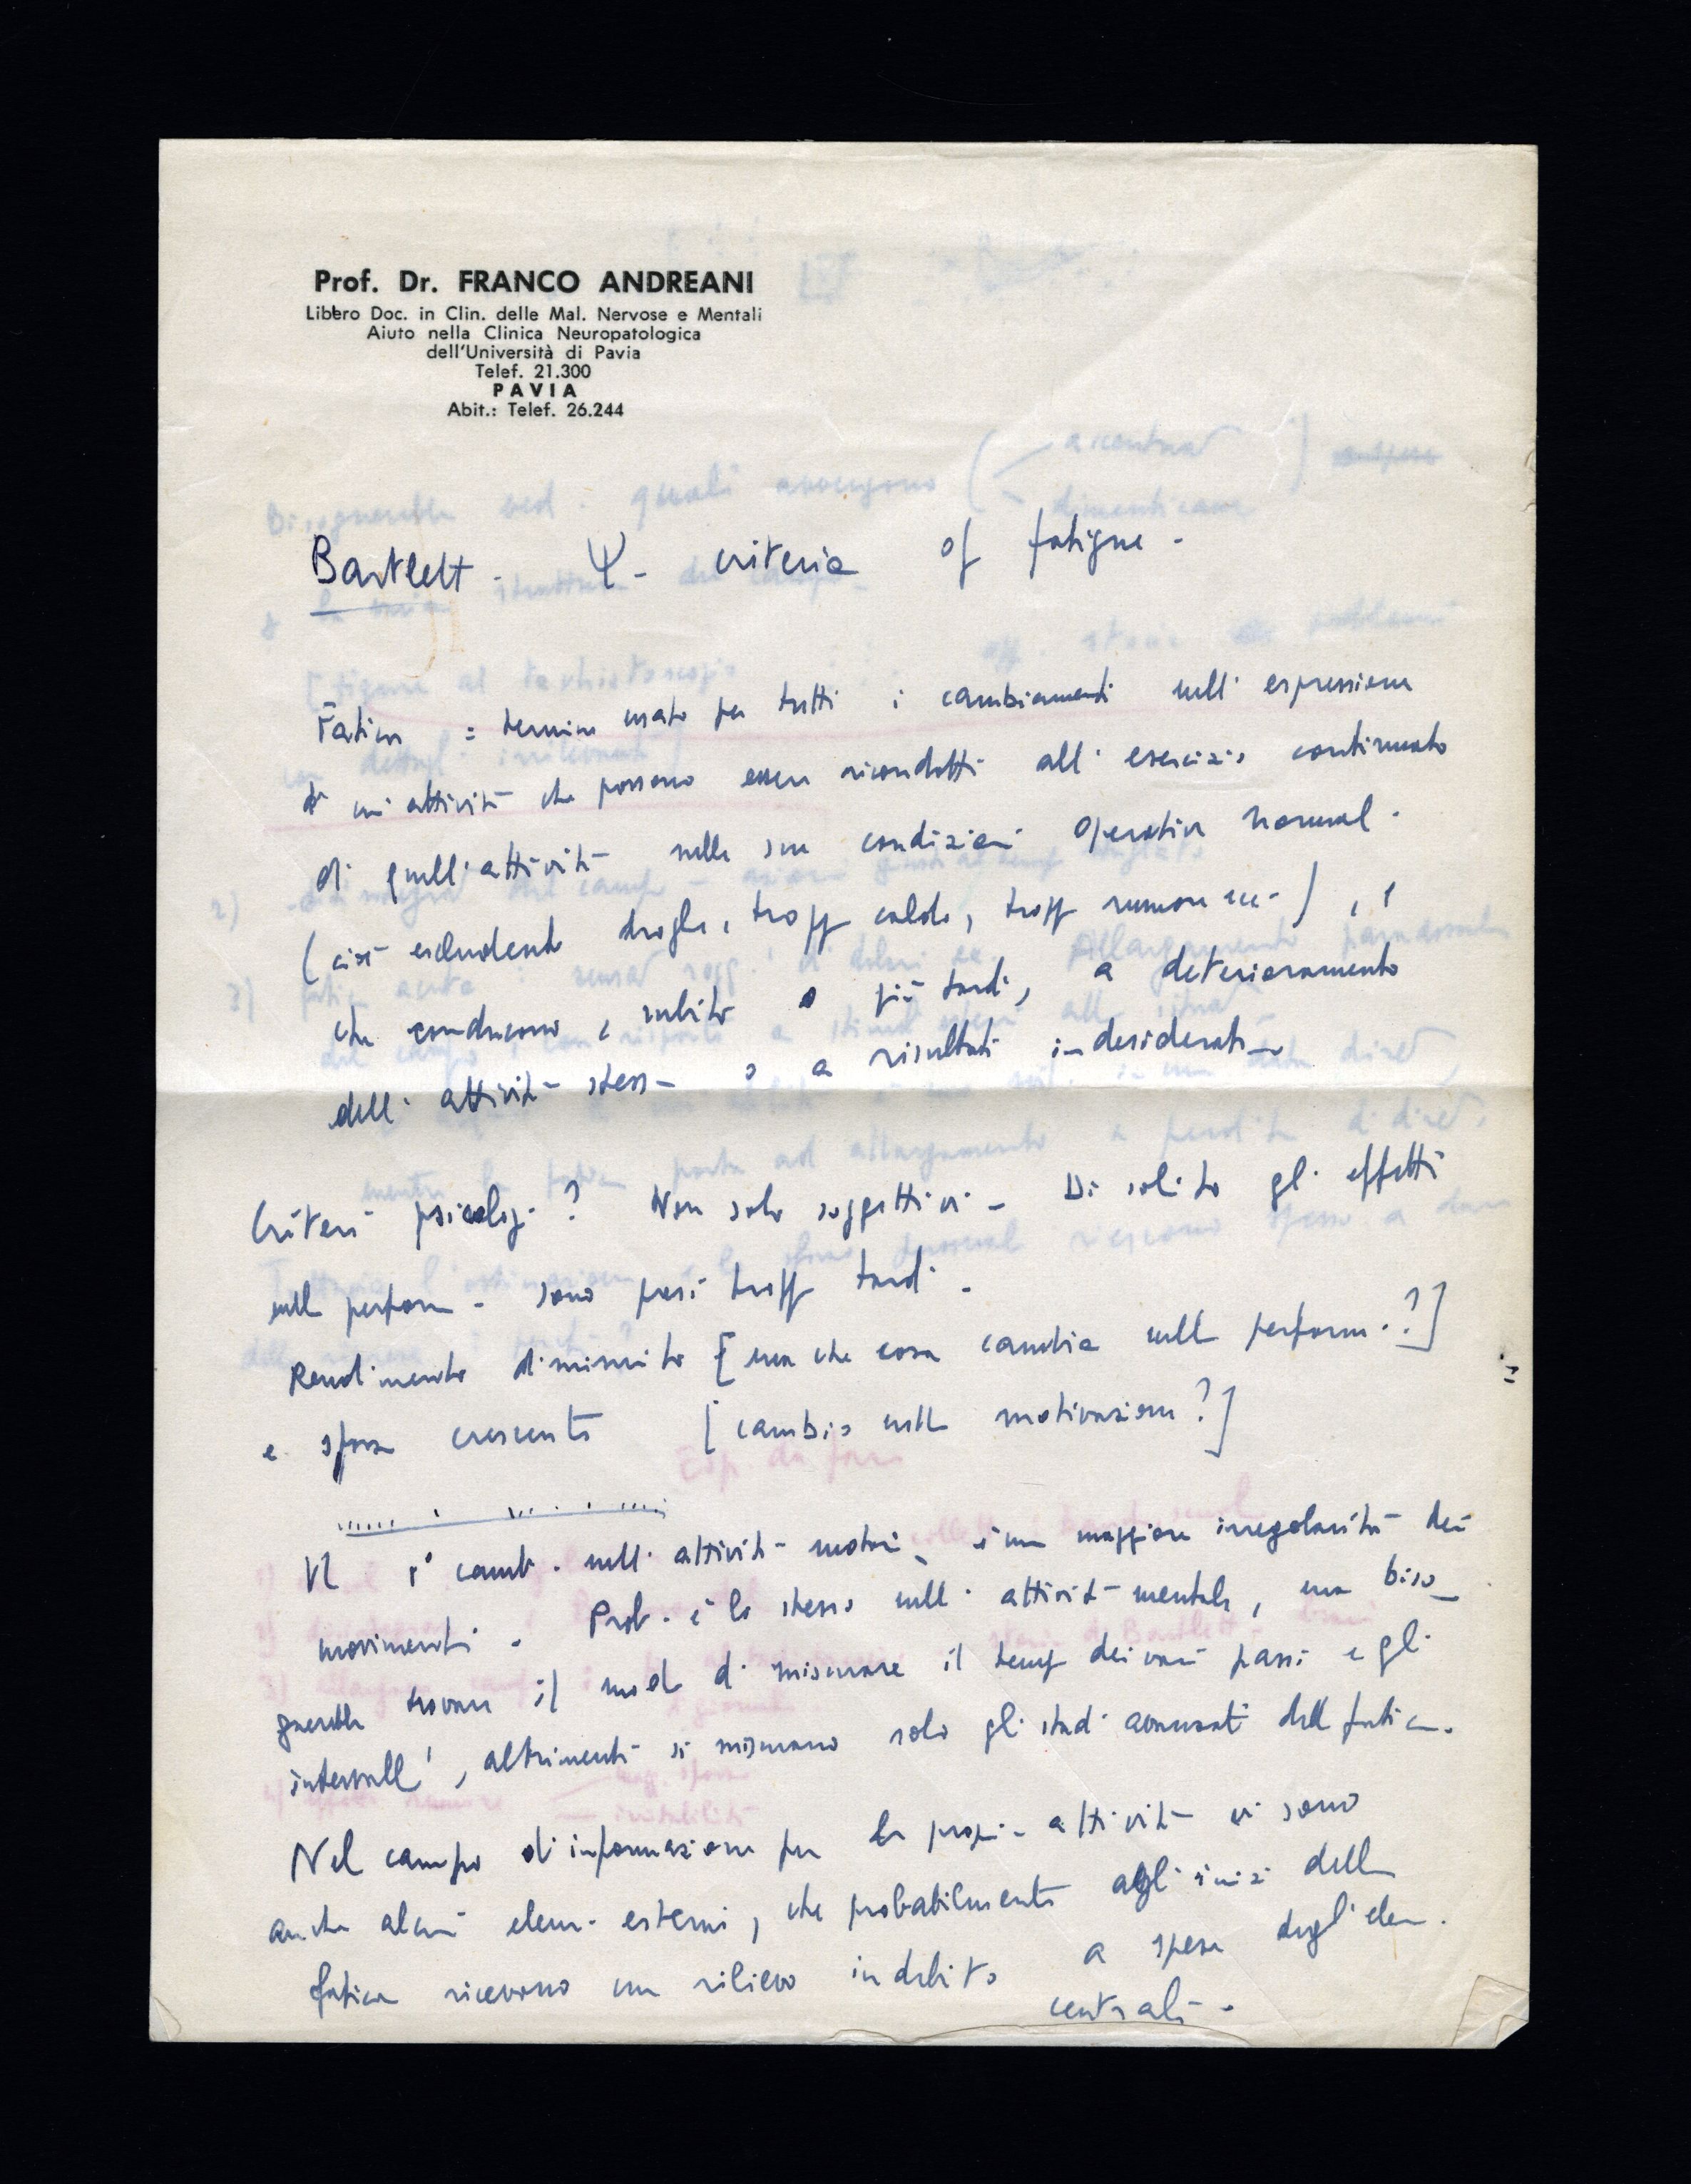 Prof. Dr. FRANCO ANDREANI
Libero Doc. in Clin. delle Mal. Nervose e Mentali
Aiuto nella Clinica Neuropatologica
dell'Università di Pavia
Telef. 21.300
PAVIA
Abit.: Telef. 26.244
Bartlett - Ψ - criteria of fatigue -
Fatica = termine usato per tutti i cambiamenti nell'espressione
di un'attività che possono essere ricondotti all'esercizio continuato
di quell'attività nelle sue condizioni operative normal.
(cioè escludendo droghe, tropp caldo, tropp rumore ecc.), e
che conducono, subito o più tardi, a deterioramento
dell'attività stessa o a risultati indesiderati
Criteri psicolog.? Non solo soggettivi - Di solito gli effetti
sulla perform. sono presi tropp tardi.
Rendimento diminuito [ma che cosa cambia nella perform.?]
e sforzo crescente [cambio nella motivazione?]
Il 1° camb. nell'attività motoria è una maggiore irregolarità dei
movimenti. Prob. è lo stesso nell'attività mentale, ma biso-
gnerebbe trovare il modo di misurare il temp dei vari passi e gli
intervalli, altrimenti si misurano solo gli stadi avanzati della fatica.
Nel campo di informazione per la propria attività vi sono
anche alcuni elem. esterni, che probabilmente agli inizi della
fatica ricevono un rilievo indebito a spese degli elem.
centrali.